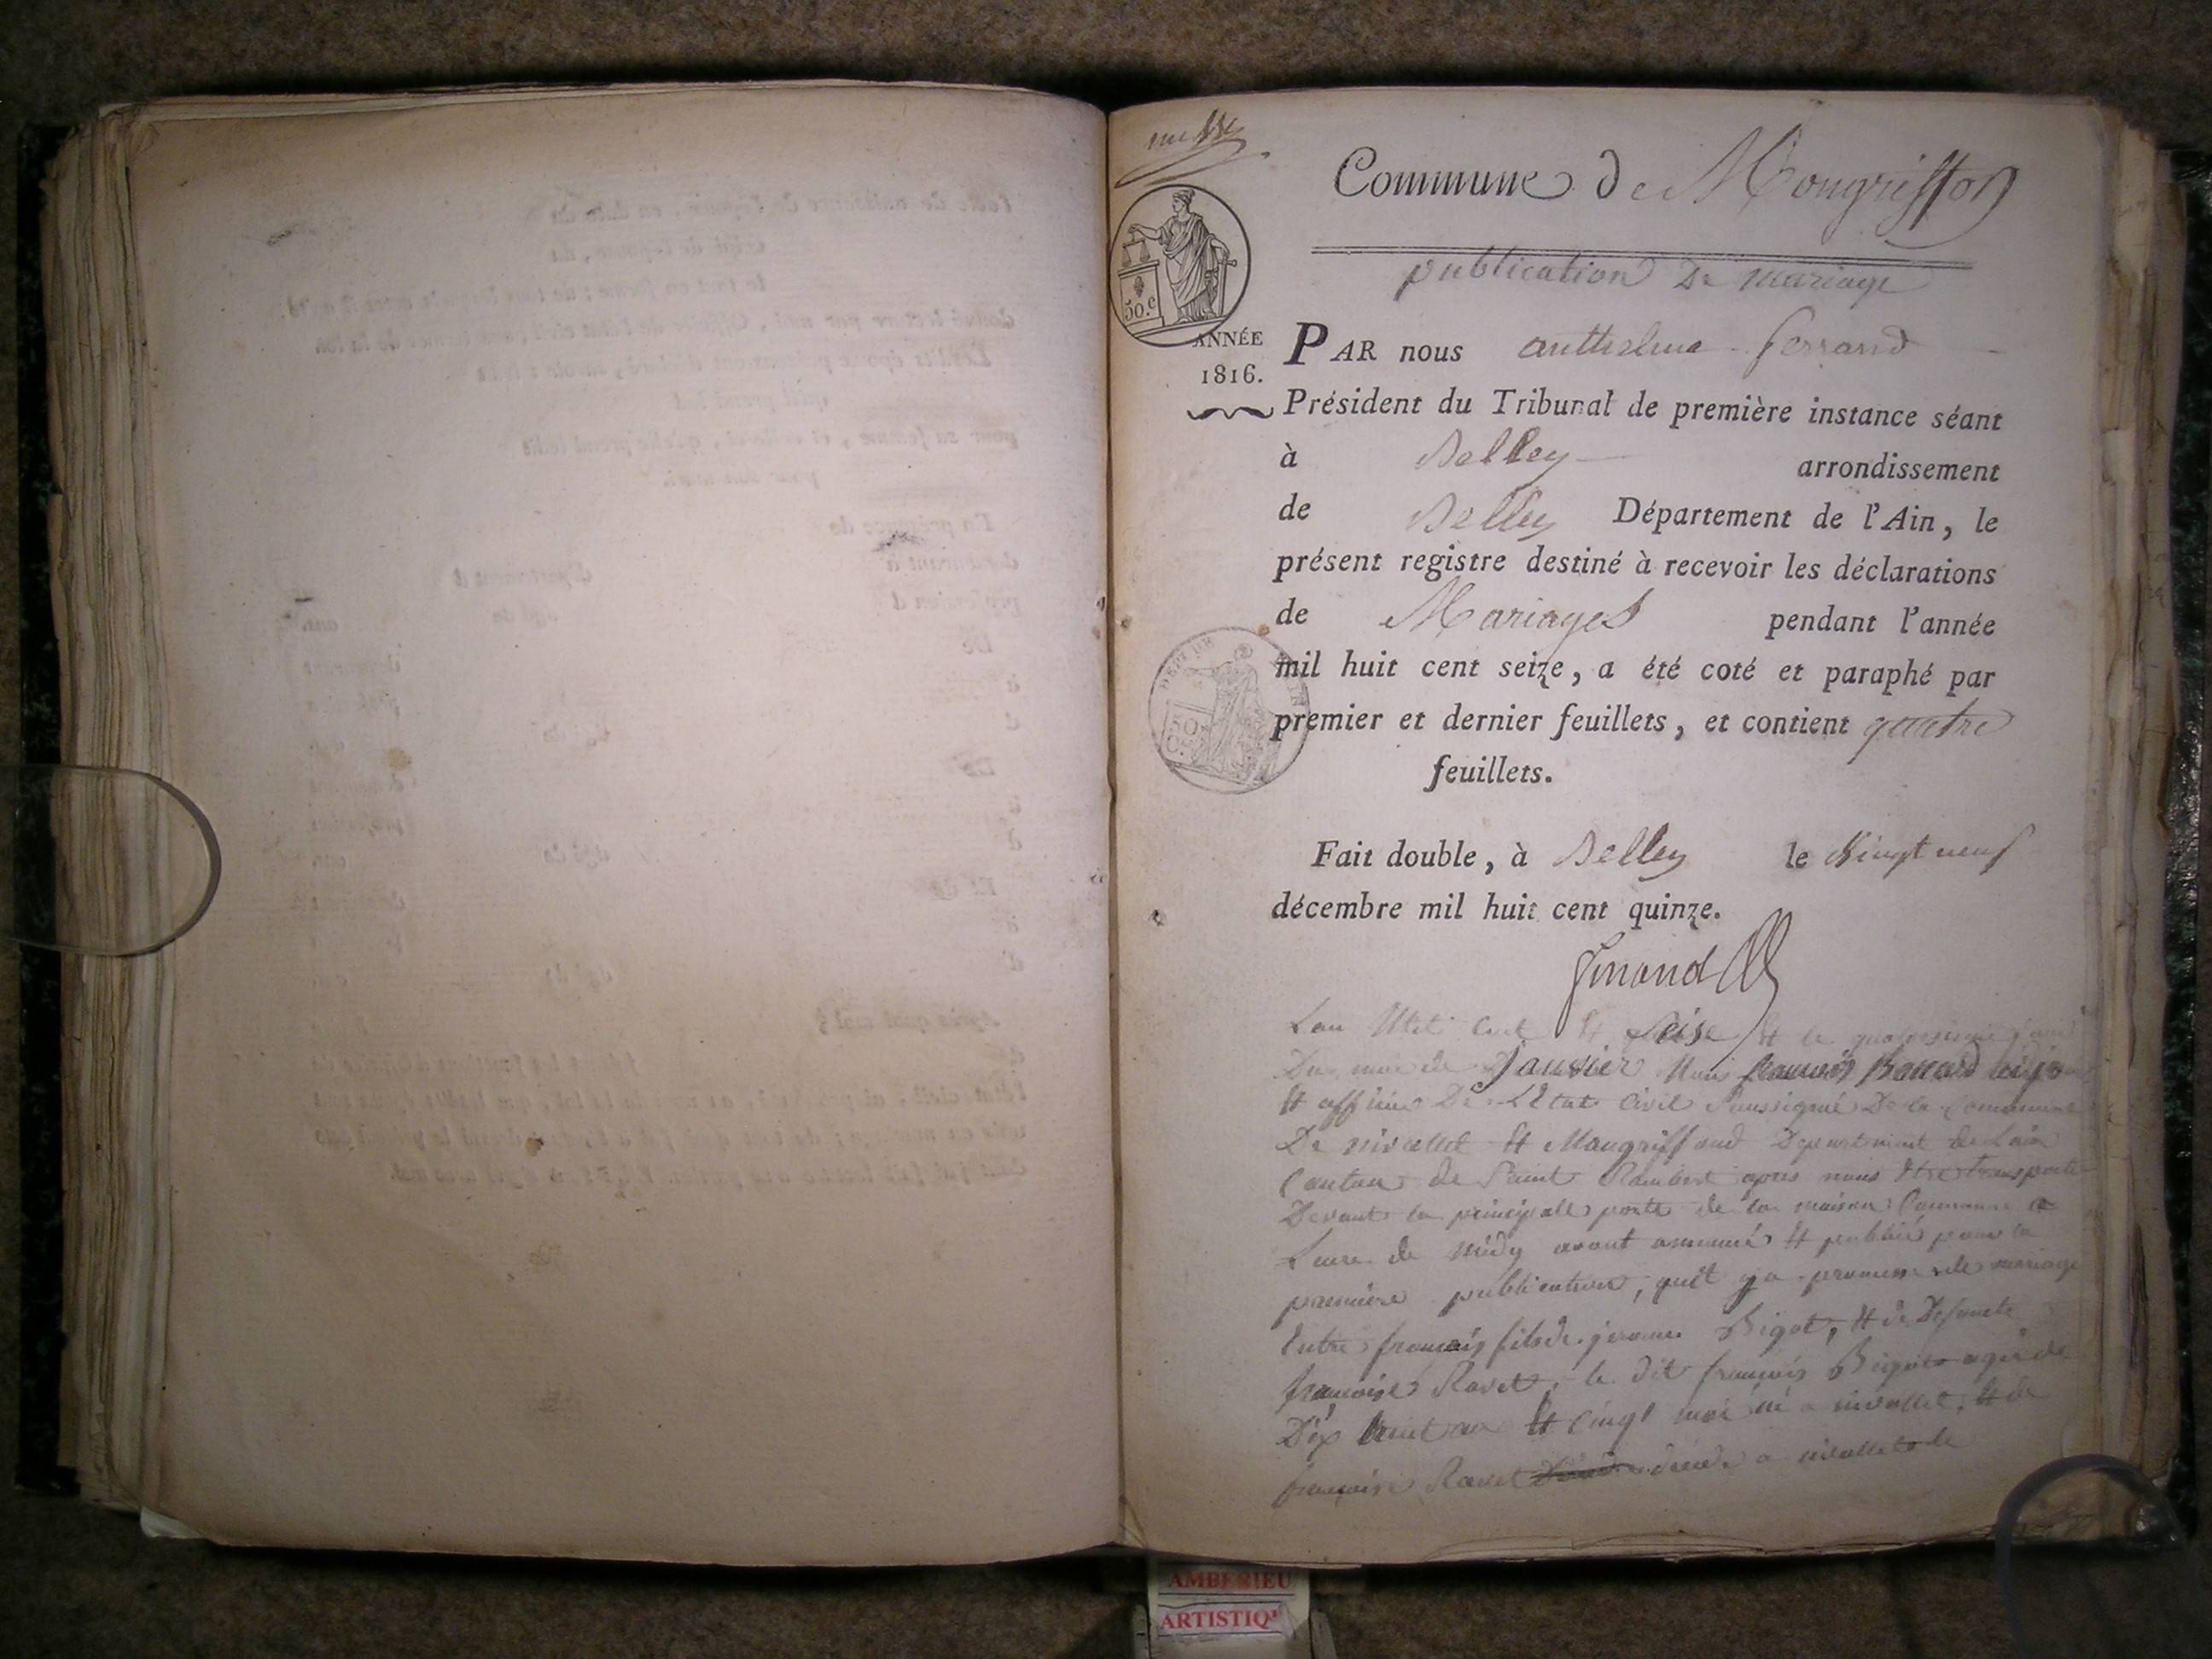 Commune de Mongriffon
publication De mariage
50.c
ANNÉE
1816.
PAR nous anthelme ferrand
Président du Tribunal de première instance séant
à Belley arrondissement
de Belley Département de l'Ain, le
présent registre destiné à recevoir les déclarations
de Mariages pendant l'année
mil huit cent seize, a été coté et paraphé par
premier et dernier feuillets, et contient quatre
feuillets.
Fait double, à Belley le vingt neuf
décembre mil huit cent quinze.
Lan Mil huit Cent Seise Et le
Du moi de Janvier Nous françois
Et officier De L'Etat Civil Soussigné De la Commune
De nivollet Et Mangriffond Departement de Lain
Canton de Saint Rambert apres nous Etre transporte
Devant la principalle porte de la maison Commune a
Lure de midy avont annoncé Et publiés pour la
premiere publication, quil y a promesse de mariage
Entre françois fils de jerome Bigot, Et de Defuncte
françoise Ravet, le dit françois Bigot agé de
Dix huit an Et cinq moi né a nivollet, Et de
françoise Ravet décédé a nivollet le
AMBERIEU
ARTISTIQ